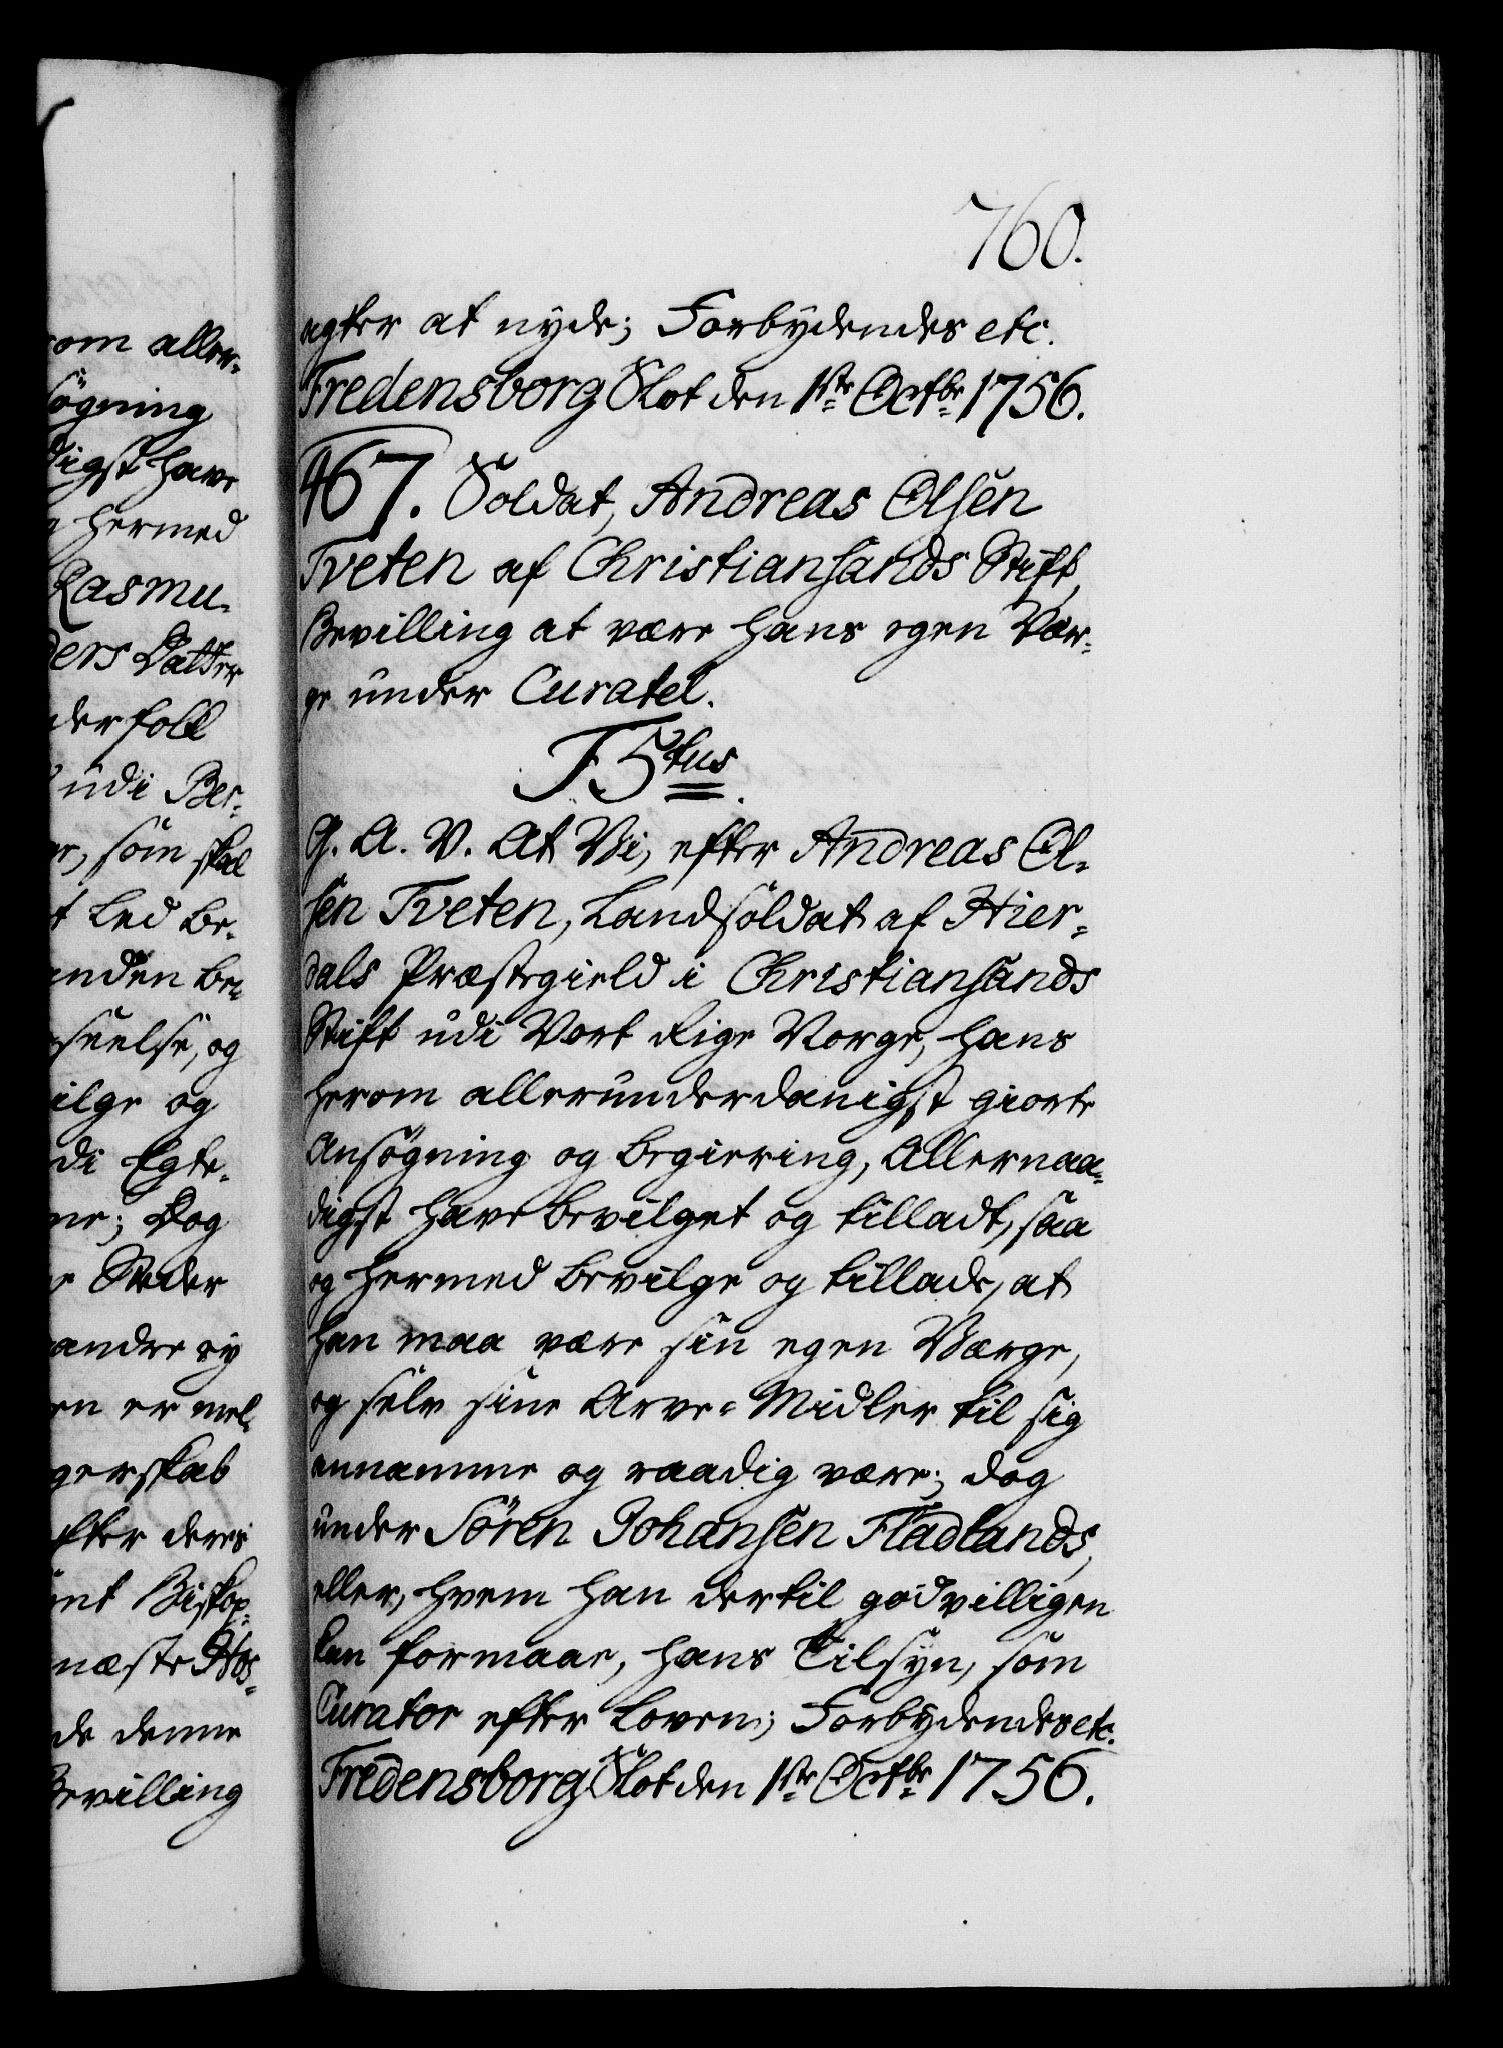 760.
agter at nyde; Forbydendes etc.
Fredensborg Slot den 1ste Octbr 1756.
467. Soldat, Andreas Olsen
Tveten af Christiansands Stift,
Bevilling at være hans egen Vær-
ge under Curatel.
F5tus.
G. A. V. At Vi, efter Andreas Ol-
sen Tveten, Landsoldat af Hier-
dals Præstegield i Christiansands
Stift udi Vort Rige Norge, hans
herom allerunderdanigst giorte
Ansøgning og begiering, Allernaa-
digst have bevilget og tilladt, saa
og hermed bevilge og tillade, at
han maa være sin egen Værge,
og selv sine Arve-Midler til sig
annamme og raadig være; dog
under Søren Johansen Fladlands,
eller, hvem han dertil godvilligen
kan formaae, hans Tilsyn, som
Curator efter Loven; Forbydendes etc.
Fredensborg Slot den 1ste Octbr 1756.
om aller-
søgning
digst have
hermed
Rasmu-
ders Datter
der foll
udi Ber-
, som skal
t Led be-
anden be-
seelse, og
ilge og
di Egte-
ne; Dog
Steder
andre ey
en er mel-
gerskab
efter deres
Biskop-
næste Hos-
de denne
Bevilling